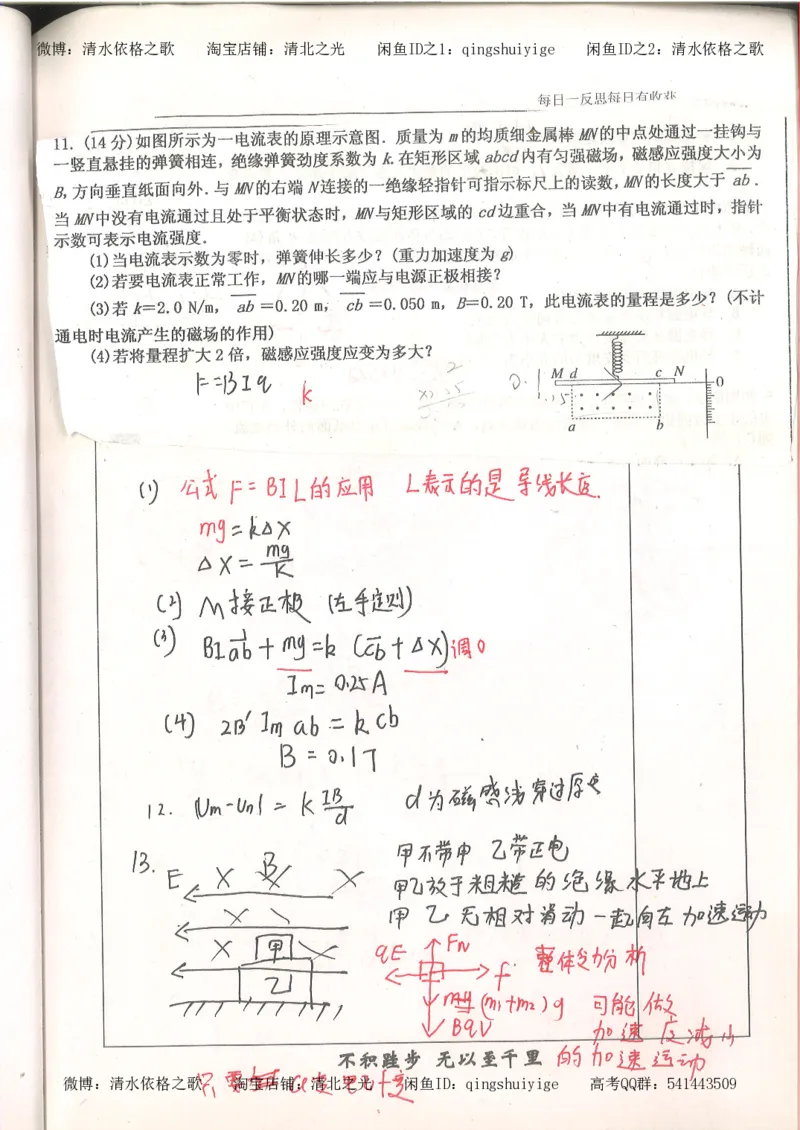 微博：清水依格之歌 淘宝店铺：清北之光 闲鱼ID之1：qingshuiyige 闲鱼ID之2：清水依格之歌
每日一反思每日有收获
11. (14分)如图所示为一电流表的原理示意图．质量为m的均质细金属棒MN的中点处通过一挂钩与
一竖直悬挂的弹簧相连，绝缘弹簧劲度系数为k.在矩形区域abcd内有匀强磁场，磁感应强度大小为
B,方向垂直纸面向外．与MN的右端N连接的一绝缘轻指针可指示标尺上的读数,MN的长度大于 ab．
当MN中没有电流通过且处于平衡状态时，MN与矩形区域的cd边重合，当MN中有电流通过时，指针
示数可表示电流强度．
(1)当电流表示数为零时，弹簧伸长多少？(重力加速度为g)
(2)若要电流表正常工作，MN的哪一端应与电源正极相接？
(3)若k＝2.0 N/m， ab ＝0.20 m； cb ＝0.050 m，B＝0.20 T，此电流表的量程是多少？(不计
通电时电流产生的磁场的作用)
(4)若将量程扩大2倍，磁感应强度应变为多大？
F=BIa
k
M d c N
0
a b
(1) 公式 F=BIL的应用 L表示的是导线长度.
mg=kΔX
ΔX=mg/k
(2) M接正极 (左手定则)
(3) BIab+mg=k(cb+ΔX)调0
Im=0.25A
(4) 2B'Im ab=k cb
B=0.1T
12. |Um-Un|=k IB/d d为磁感线穿过厚度
13. 甲不带电 乙带正电
E B
甲乙放于粗糙的绝缘水平地上
甲乙无相对滑动一起向左加速运动
甲
乙
qE FN f 整体受力分析
(m1+m2)g 可能做
BqV 加速度减小
的加速运动
不积跬步 无以至千里
微博：清水依格之歌 淘宝店铺：清北之光 闲鱼ID：qingshuiyige 高考QQ群：541443509